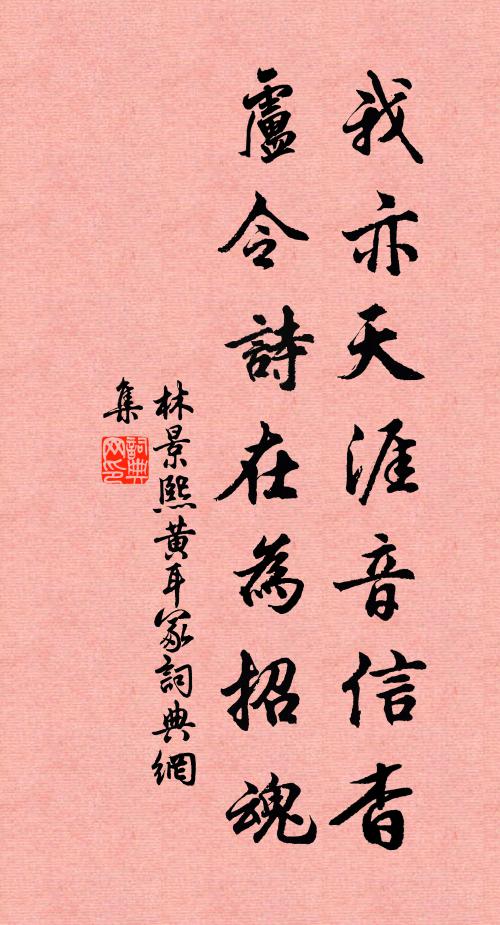 我亦天涯音信杳
盧令詩在為招魂
林景熙黃耳冢詞典網
集
詞典網印